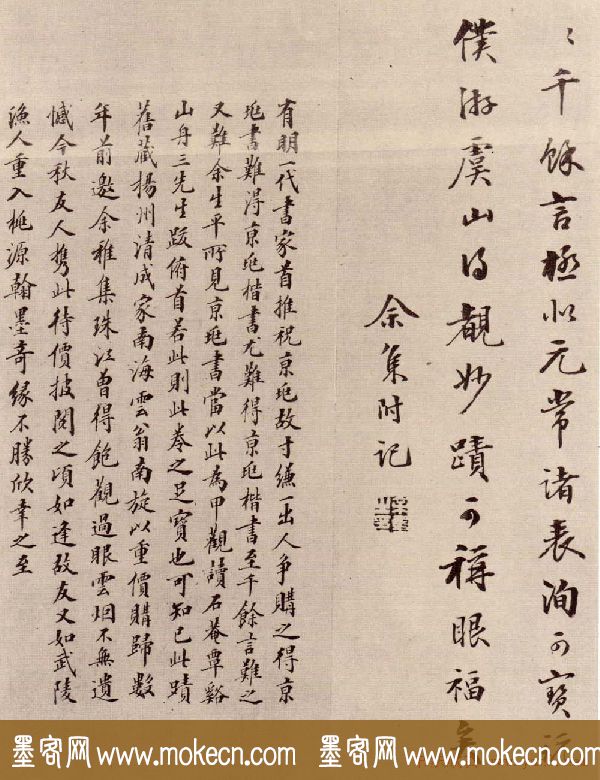 〻千餘言極似元常諸表洵可寶玩
僕游虞山得觀妙蹟可稱眼福矣
余集附記
有明一代書家首推祝京兆故寸縑一出人爭購之得京
兆書難得京兆楷書尤難得京兆楷書至千餘言難之
又難余生平所見京兆書當以此為甲觀讀石菴覃谿
山舟三先生跋俯首若此則此卷之足寶也可知已此蹟
舊藏揚州清成家南海雲翁南旋以重價購歸數
年前邀余雅集珠江曾得飽觀過眼雲烟不無遺
憾今秋友人携此待價披閱之頃如逢故友又如武陵
漁人重入桃源翰墨奇緣不勝欣幸之至
墨客网 www.mokecn.com 墨客网 www.mokecn.com